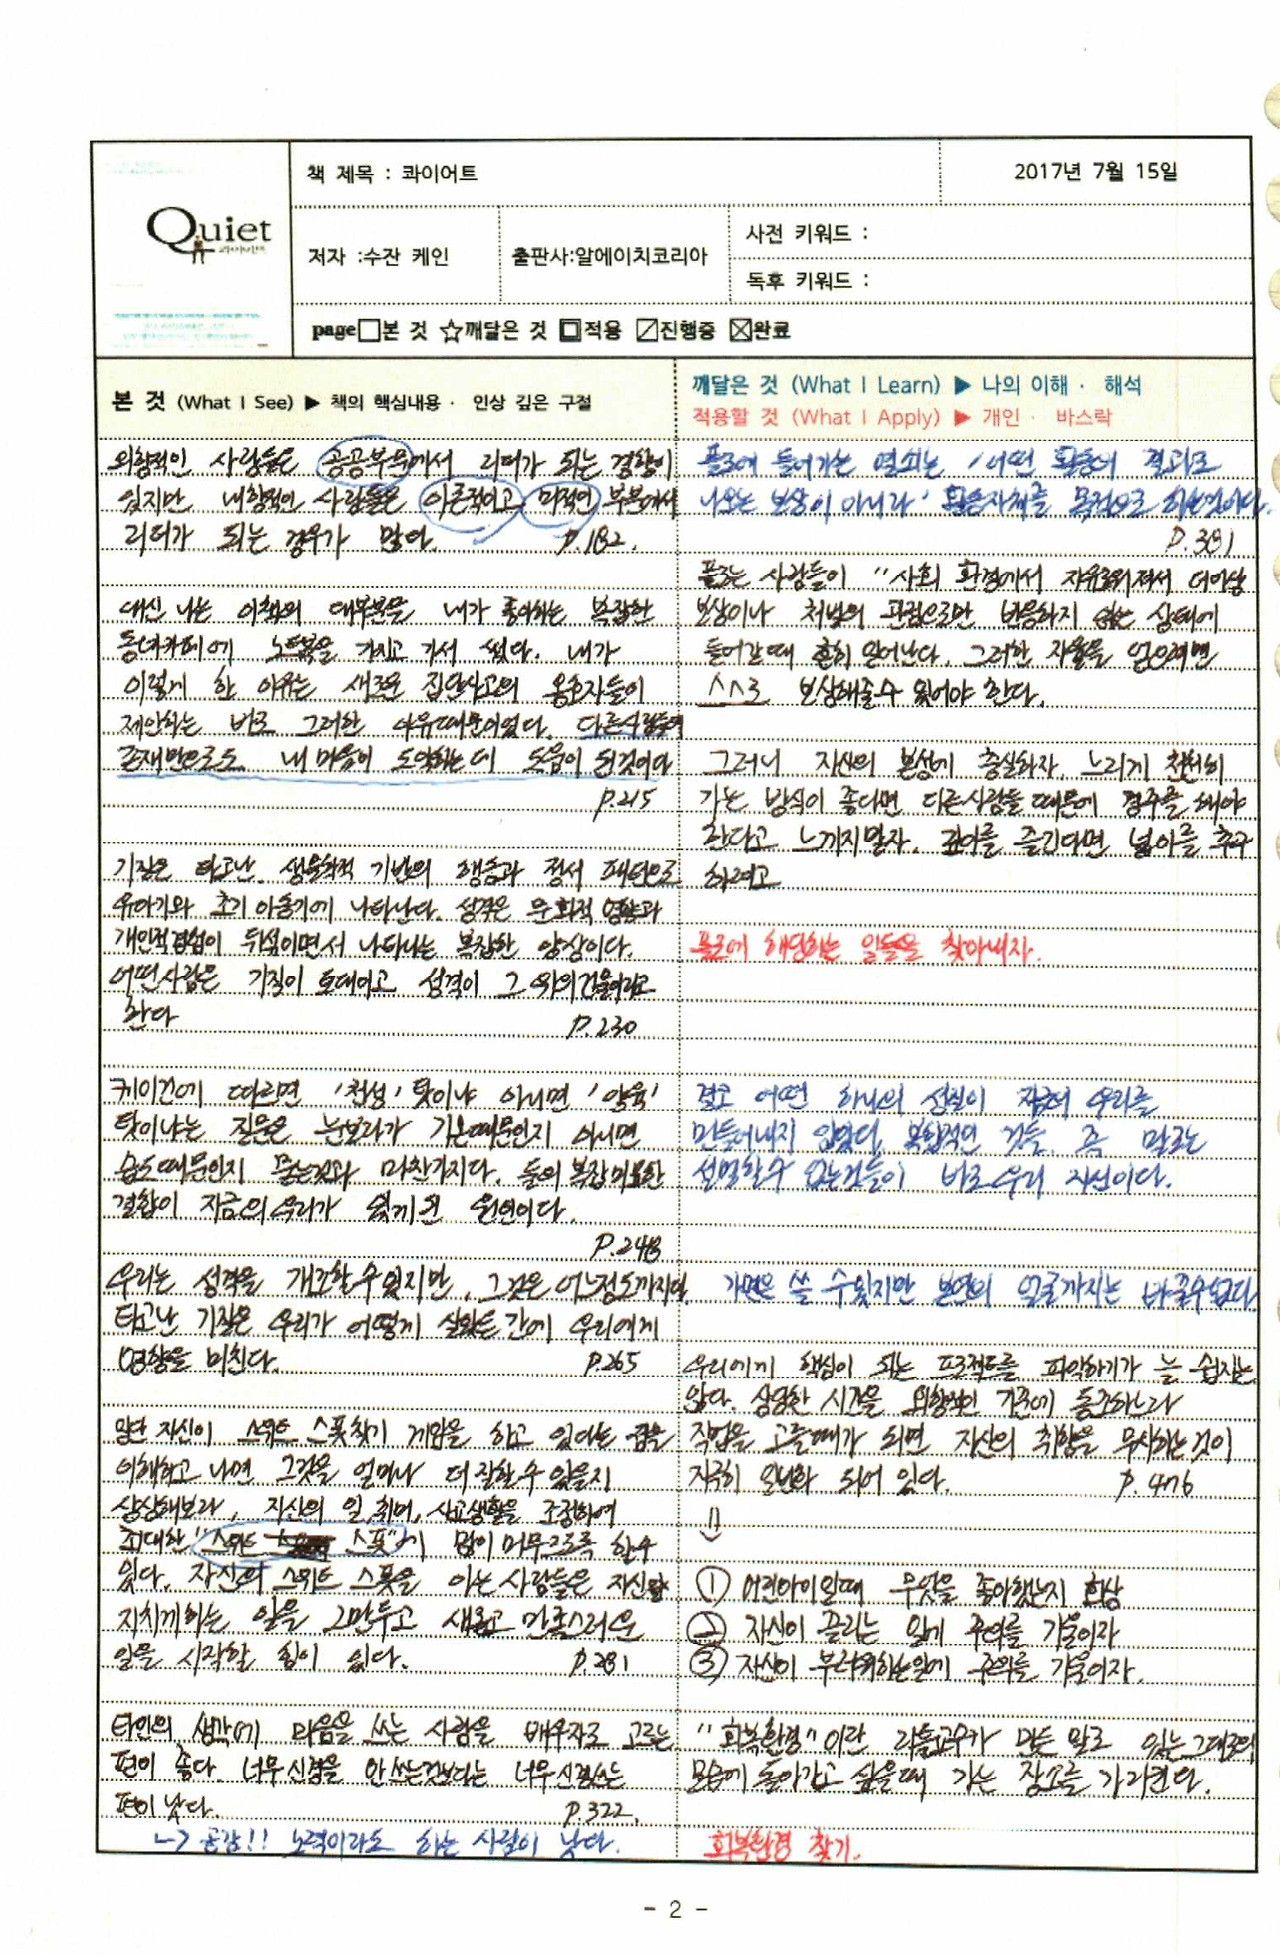 Quiet
콰이어트
책 제목 : 콰이어트
2017년 7월 15일
저자 :수잔 케인
출판사:알에이치코리아
사전 키워드 :
독후 키워드 :
page□본 것 ☆깨달은 것 □적용 ☑진행중 ☒완료
본 것 (What I See) ▶ 책의 핵심내용 · 인상 깊은 구절
외향적인 사람들은 공공부문에서 리더가 되는 경향이
있지만 내향적인 사람들은 이론적이고 미적인 부분에서
리더가 되는 경우가 많다. p.182.
대신 나는 이책의 대부분을 내가 좋아하는 복잡한
동네카페에 노트북을 가지고 가서 썼다. 내가
이렇게 한 이유는 새로운 집단사고의 옹호자들이
제안하는 바로 그러한 이유때문이었다. 다른사람들의
존재만으로도 내 마음이 도약하는데 도움이 된것이다
p.215
기질은 타고난, 생물학적 기반의 행동과 정서 패턴으로
유아기와 초기 아동기에 나타난다. 성격은 문화적 영향과
개인적경험이 뒤섞이면서 나타나는 복잡한 양상이다.
어떤사람은 기질이 토대이고 성격이 그 위의건물이라고
한다 p.230
케이건에 따르면 '천성' 탓이냐 아니면 '양육'
탓이냐는 질문은 눈보라가 기온때문인지 아니면
습도때문인지 묻는것과 마찬가지다. 둘의 복잡미묘한
결합이 지금의 우리가 있게 된 원인이다.
p.248
우리는 성격을 개조할수있지만, 그것은 어느정도까지다.
타고난 기질은 우리가 어떻게 살았든간에 우리에게
영향을 미친다. p.265
일단 자신이 스위트 스폿찾기 게임을 하고 있다는 점을
이해하고 나면 그것을 얼마나 더 잘할수 있을지
상상해보라, 자신의 일,취미,사교생활을 조정하여
최대한 "스위트 스폿"에 많이 머무르도록 할수
있다. 자신의 스위트 스폿을 아는 사람들은 자신을
지치게하는 일을 그만두고 새롭고 만족스러운
일을 시작할 힘이 있다. p.281
타인의 생각에 마음을 쓰는 사람을 배우자로 고르는
편이 좋다. 너무신경을 안쓰는것보다는 너무신경쓰는
편이 낫다. p.322.
→ 공감!! 노력이라도 하는 사람이 낫다.
깨달은 것 (What I Learn) ▶ 나의 이해 · 해석
적용할 것 (What I Apply) ▶ 개인 · 바스락
플로에 들어가는 열쇠는 '어떤 활동의 결과로
나오는 보상이 아니라' 활동자체를 목적으로 하는것이다.
p.381
플로는 사람들이 "사회 환경에서 자유로워져서 더이상
보상이나 처벌의 관점으로만 반응하지 않는 상태에
들어갈때 흔히 일어난다. 그러한 자율을 얻으려면
스스로 보상해줄수 있어야 한다.
그러니 자신의 본성에 충실하자. 느리게 천천히
가는 방식이 좋다면 다른사람들 때문에 경주를 해야
한다고 느끼지말자. 깊이를 즐긴다면 넓이를 추구
하려고
플로에 해당하는 일들을 찾아내자.
결코 어떤 하나의 성질이 지금의 우리를
만들어내지 않았다. 복합적인 것들, 즉 말로는
설명할수 없는것들이 바로 우리 자신이다.
가면은 쓸 수있지만 본연의 얼굴까지는 바꿀수없다
우리에게 핵심이 되는 프로젝트를 파악하기가 늘 쉽지는
않다. 상당한 시간을 외향적인 기준에 동조하느라
직업을 고를때가 되면 자신의 취향을 무시하는것이
지극히 일반화 되어 있다. p.476
⇓
① 어린아이일때 무엇을 좋아했는지 회상
② 자신이 끌리는 일에 주의를 기울이자
③ 자신이 부러워하는일에 주의를 기울이자.
"회복환경"이란 리틀교수가 만든 말로 있는그대로의
모습에 돌아가고 싶을때 가는 장소를 가리킨다.
회복환경 찾기.
- 2 -